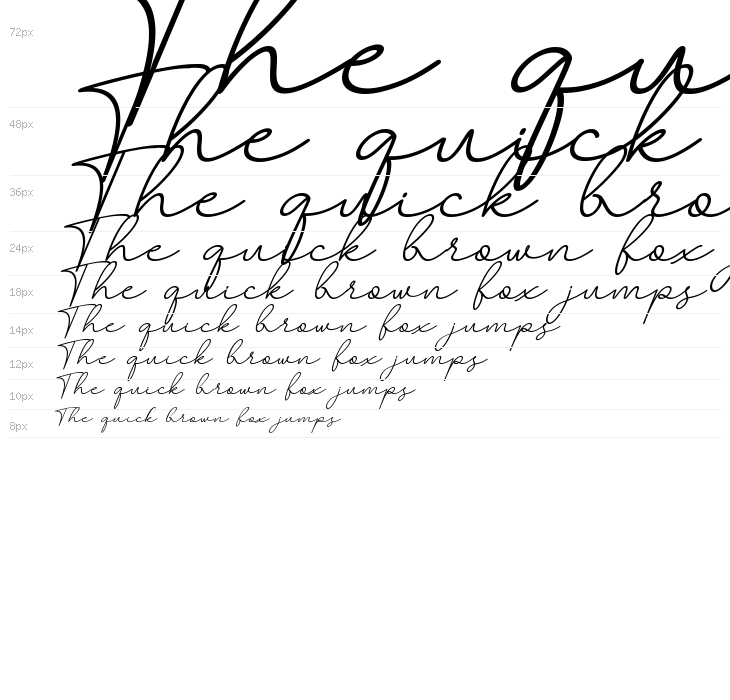 72px The qu
48px The quick
36px The quick bro
24px The quick brown fox
18px The quick brown fox jumps
14px The quick brown fox jumps
12px The quick brown fox jumps
10px The quick brown fox jumps
8px The quick brown fox jumps